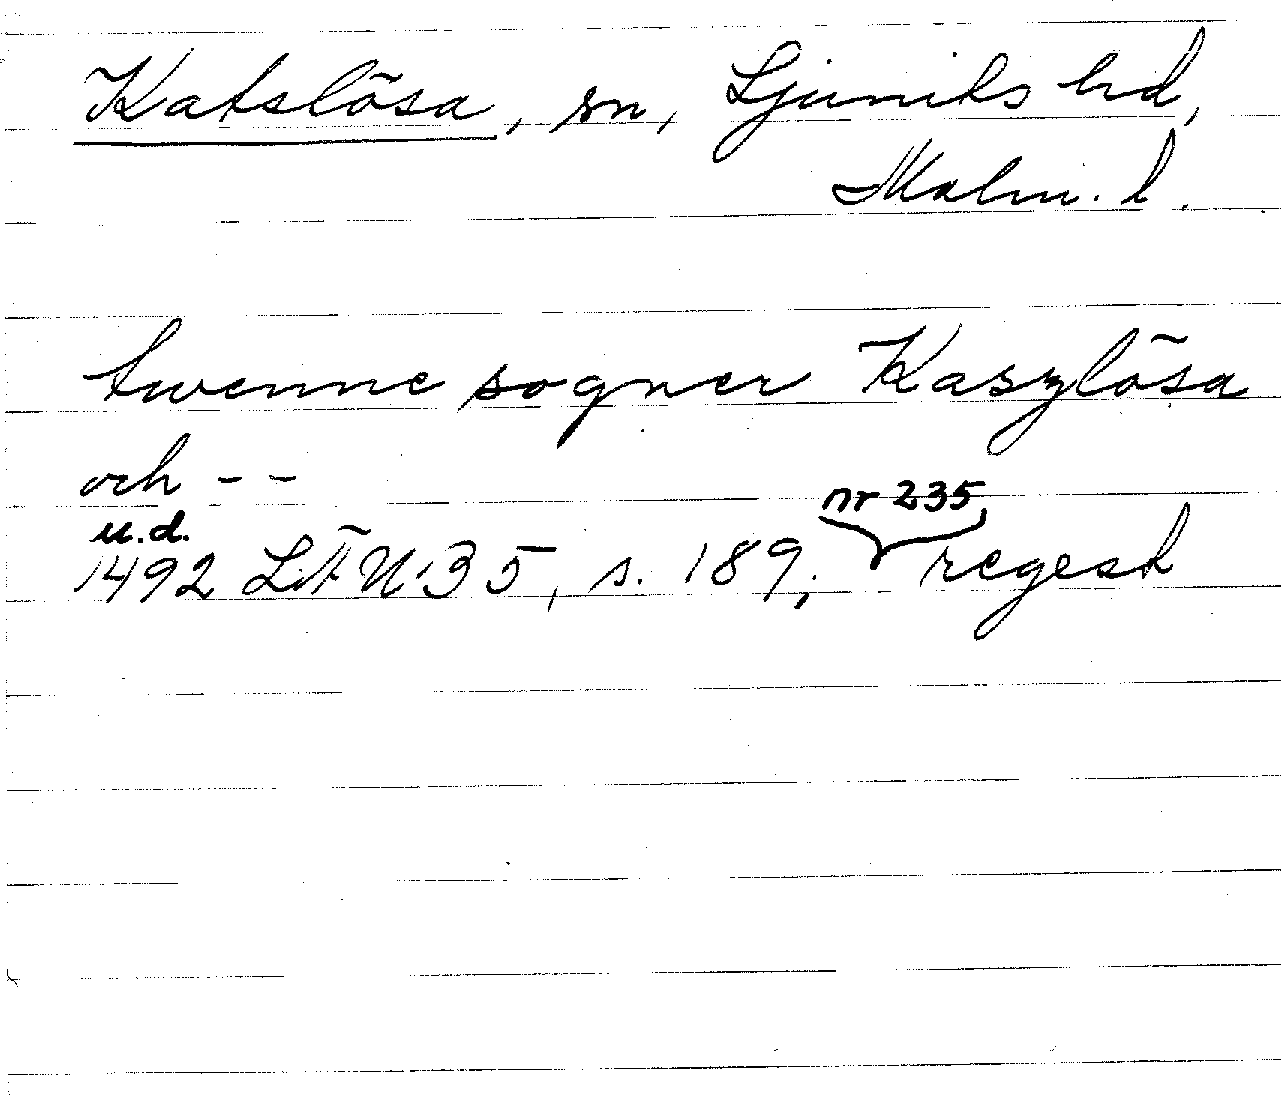 Katslösa, sn, Ljunits hd,
Malm. l.
twenne sogner Kaszlösa
och - -
nr 235
u.d.
1492 LÄU 35, s. 189, regest